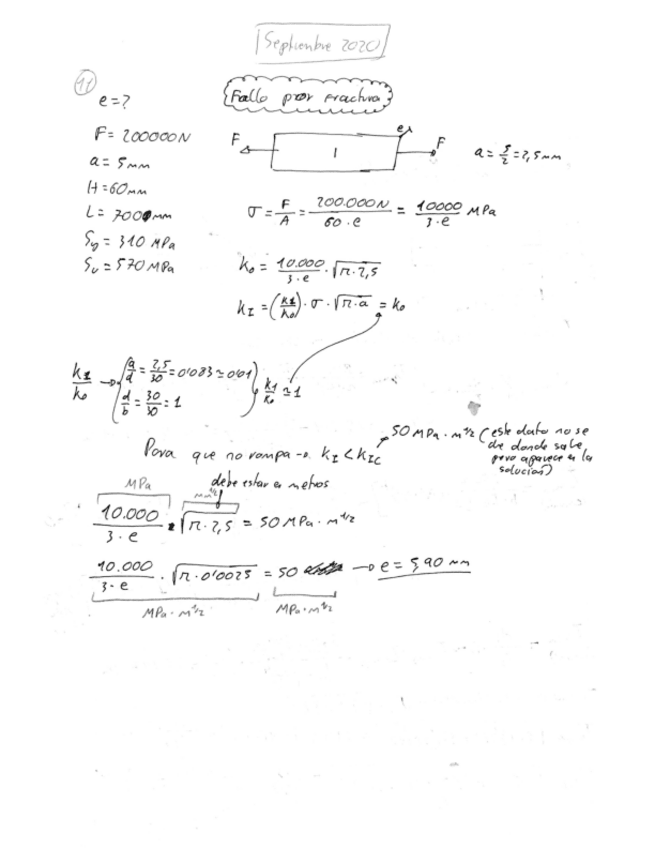 Septiembre 2020
11
e=?
Fallo por fractura
F= 200000N
F e F
1
a = 5/2 = 2,5mm
a = 5mm
H = 60mm
L = 7000mm
σ = F/A = 200.000N / 60·e = 10000 / 3·e MPa
Sy = 310 MPa
Su = 570 MPa
k₀ = 10.000 / 3·e · √π·2,5
k_I = (k_I/k₀) · σ · √π·a = k₀
k_I/k₀ → { a/d = 2,5/30 = 0'083 ≃ 0'01
d/b = 30/30 = 1 } k_I/k₀ ≃ 1
Para que no rompa → k_I < k_IC
50 MPa·m^1/2 (este dato no se
de donde sale
pero aparece en la
solución)
MPa
debe estar en metros
mm^1/2
10.000 / 3·e · √π·2,5 = 50 MPa·m^1/2
10.000 / 3·e · √π·0'0025 = 50 → e = 5,90 mm
MPa·m^1/2 MPa·m^1/2